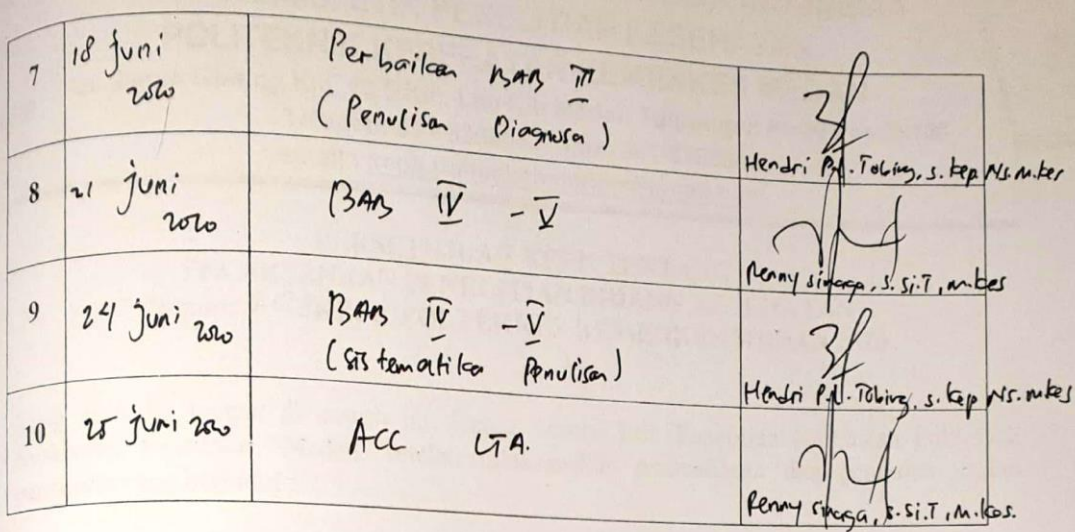 7 18 juni 2020 Perbaikan BAB III
(Penulisan Diagnosa)
Hendri P.L. Tobing, s. kep Ns. m.kes
8 21 juni 2020 BAB IV - V
Renny sinaga, s. Si.T, m.kes
9 24 juni 2020 BAB IV - V
(sistematika penulisan)
Hendri P.L. Tobing, s. kep Ns. m.kes
10 25 juni 2020 ACC LTA.
Renny sinaga, s. Si.T, m.kes.